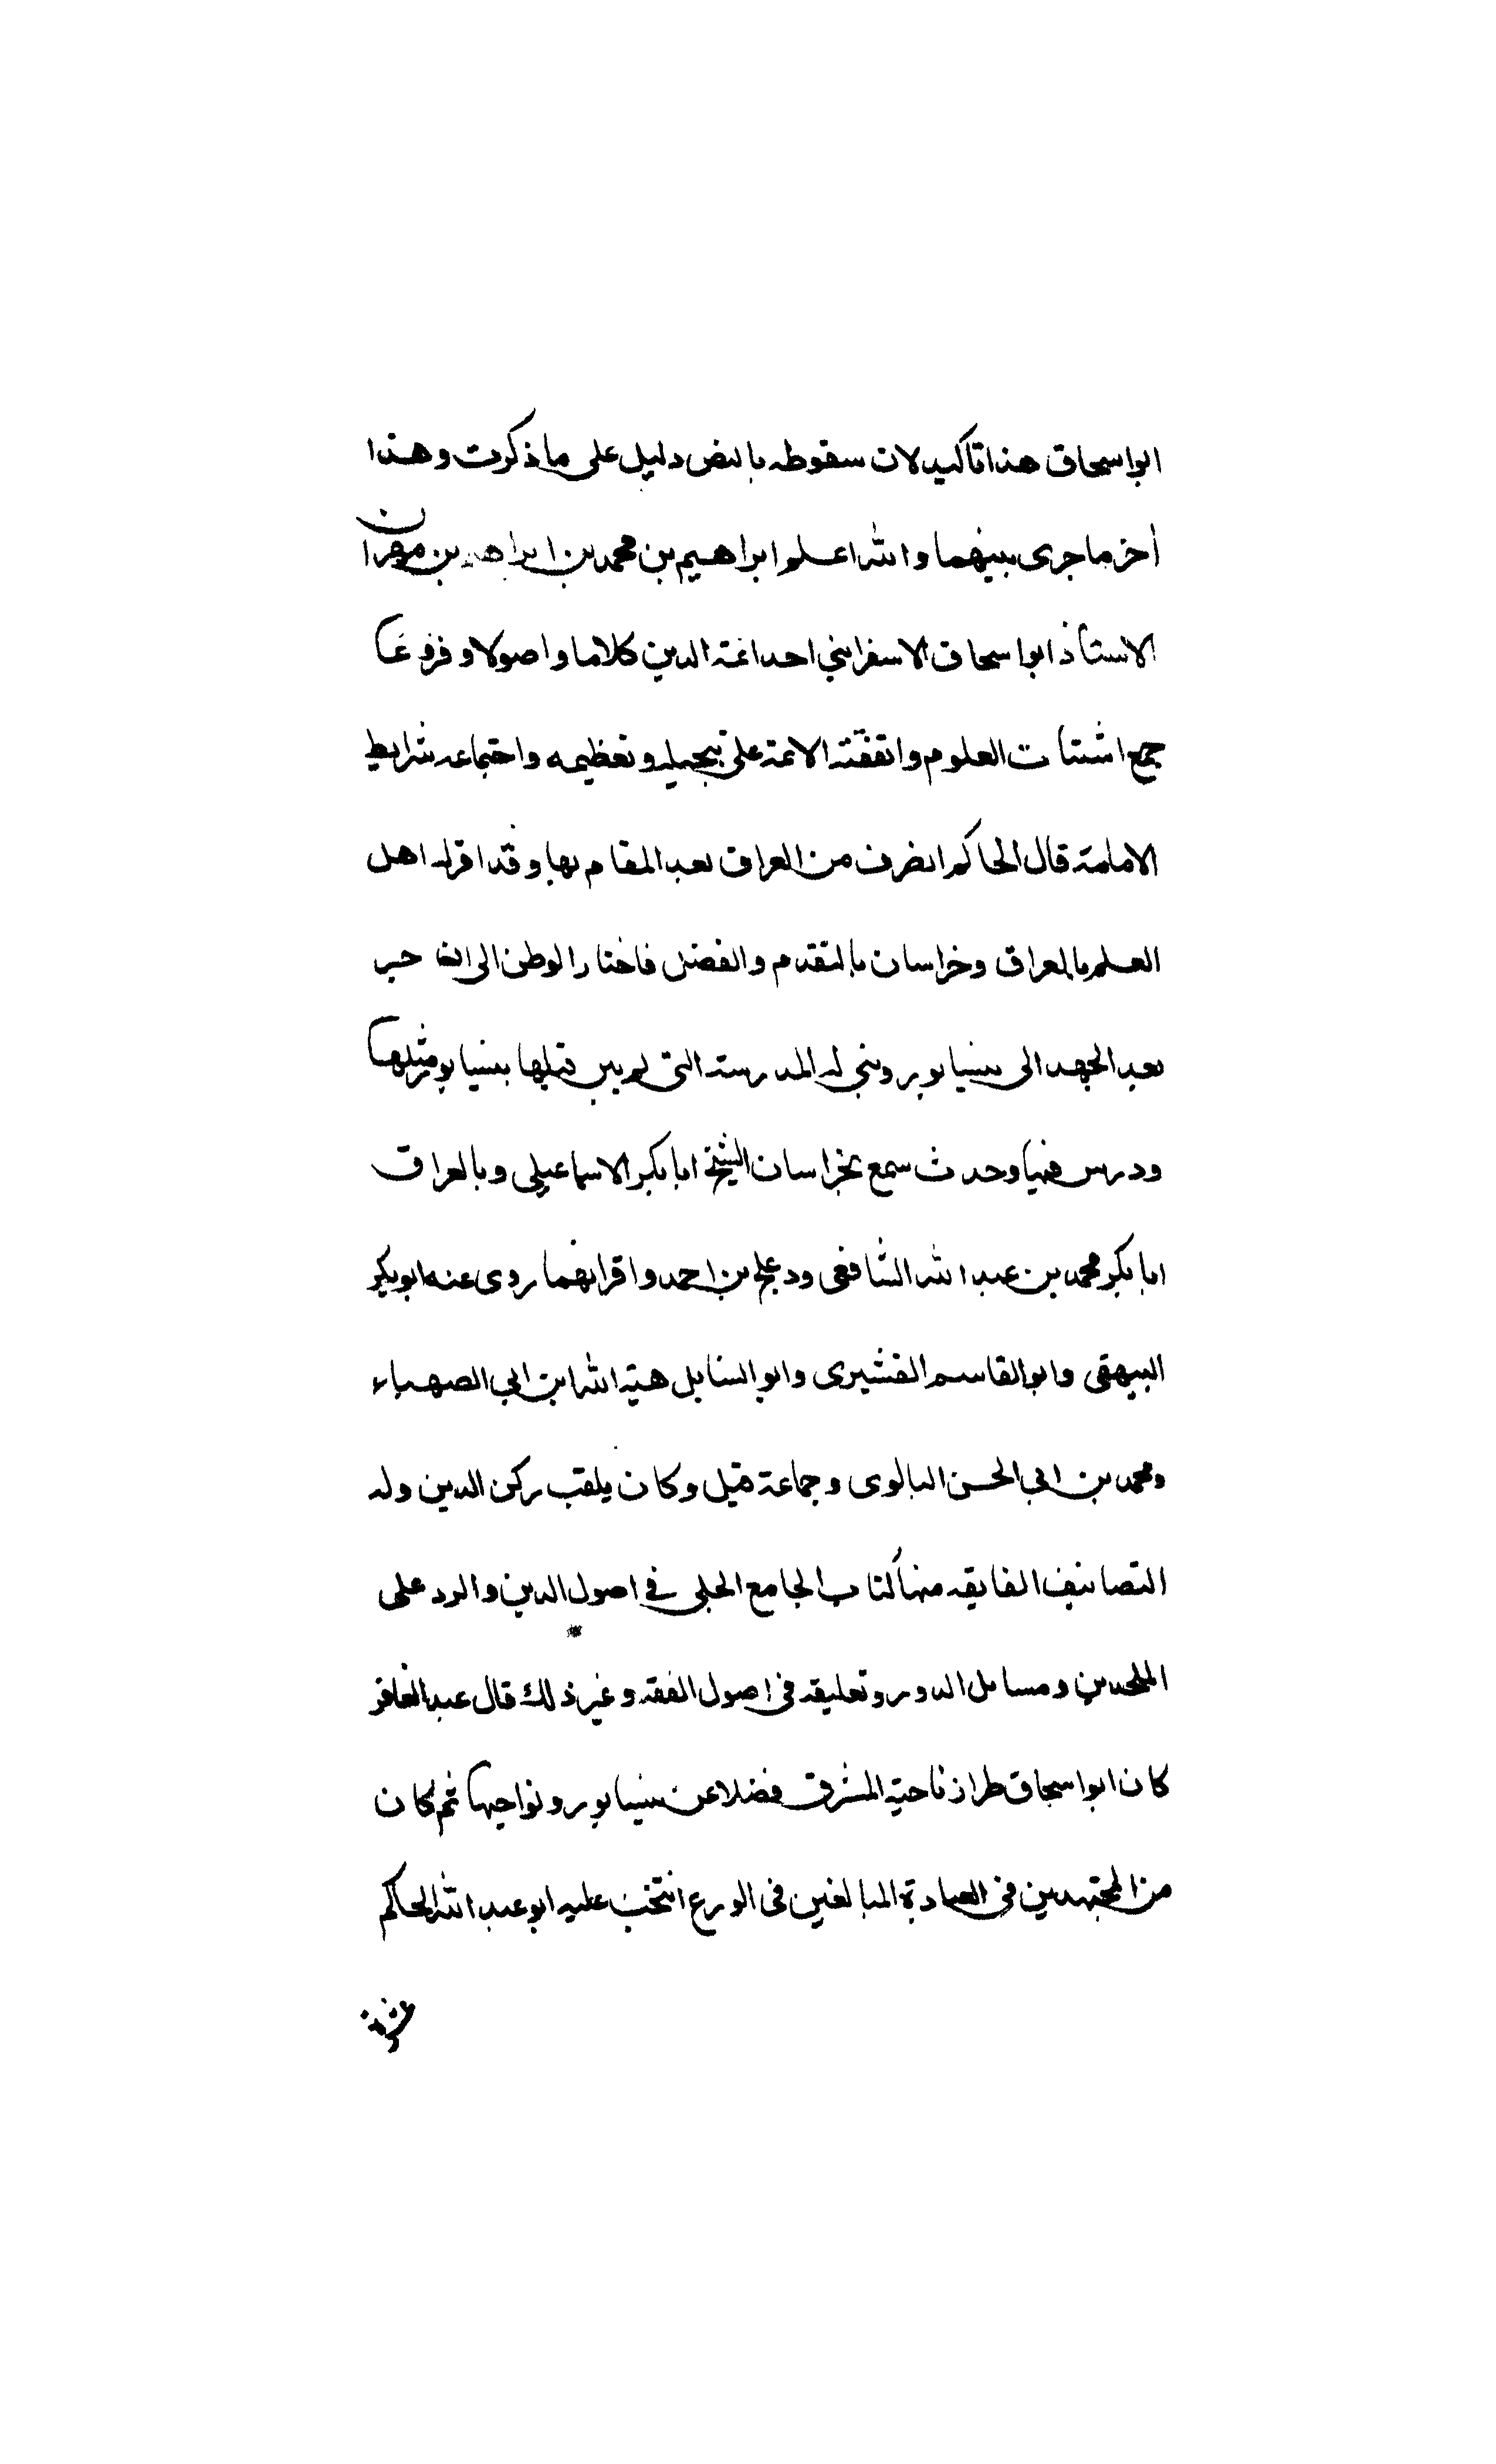 ابواسحاق هذا تاكيد لان سقوطه بالنص دليل على ما ذكرت وهذا
أخر ما جرى بينهما والله اعلم ابراهيم بن محمد بن ابراهيم بن مهران
الاستاذ ابو اسحاق الاسفرايني احد ائمة الدين كلاما واصولا وفروعا
جمع اشتات العلوم واتفقته الائمة على تبجيله وتعظيمه واجتماعه شرايط
الامامة قال الحاكم انصرف من العراق بعد المقام بها وقد اقر له اهل
العلم بالعراق وخراسان بالتقدم والفضل فاختار الوطن الى ان خبر
بعد الجهد الى نيسابور وبني له المدرسة التي لم يبن قبلها بنيسابور مثلها
ودرس فيها وحدث سمع بخراسان الشيخ ابا بكر الاسماعيلي وبالعراق
ابا بكر محمد بن عبد الله الشافعي ودعلج بن احمد واقرانهما روى عنه ابو بكر
البيهقي وابو القاسم القشيري وابو السنابل هبة الله ابن ابي الصهباء
ومحمد بن ابي الحسن البالوى وجماعة قيل وكان يلقب ركن الدين وله
التصانيف الفايقه منها كتاب الجامع الحلي في اصول الدين والرد على
الملحدين ومسايل الدور وتعليقه في اصول الفقه وغير ذلك قال عبد الغافر
كان ابو اسحاق طراز ناحية المشرق فضلا عن نيسابور ونواحيها ثم كان
من المجتهدين في العبادة المبالغين في الورع انتخب عليه ابو عبد الله الحاكم